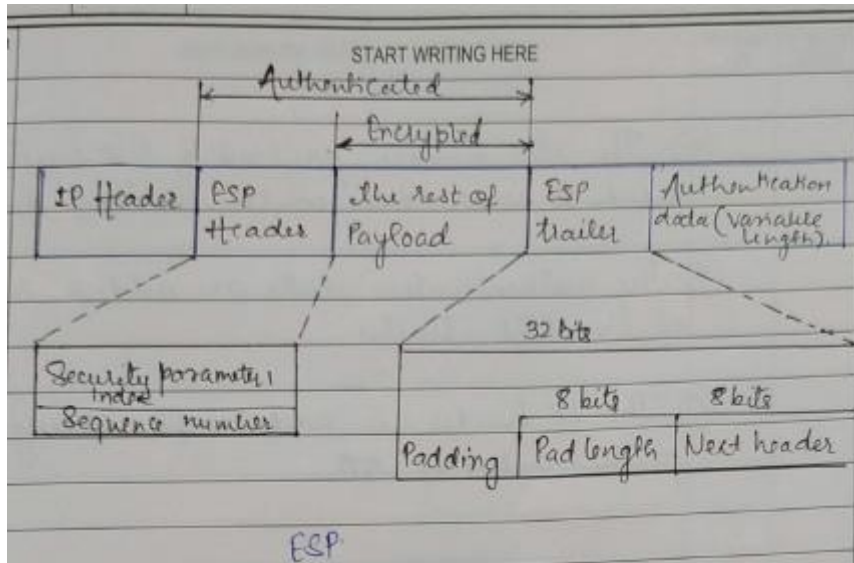 START WRITING HERE
Authenticated
Encrypted
IP Header
ESP
Header
The rest of
Payload
ESP
trailer
Authentication
data (variable
length)
32 bits
Security parameter
index
Sequence number
8 bits
8 bits
Padding
Pad length
Next header
ESP